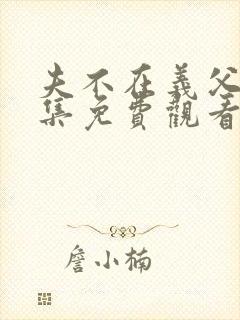 夫不在義父
集免費觀看
詹小楠